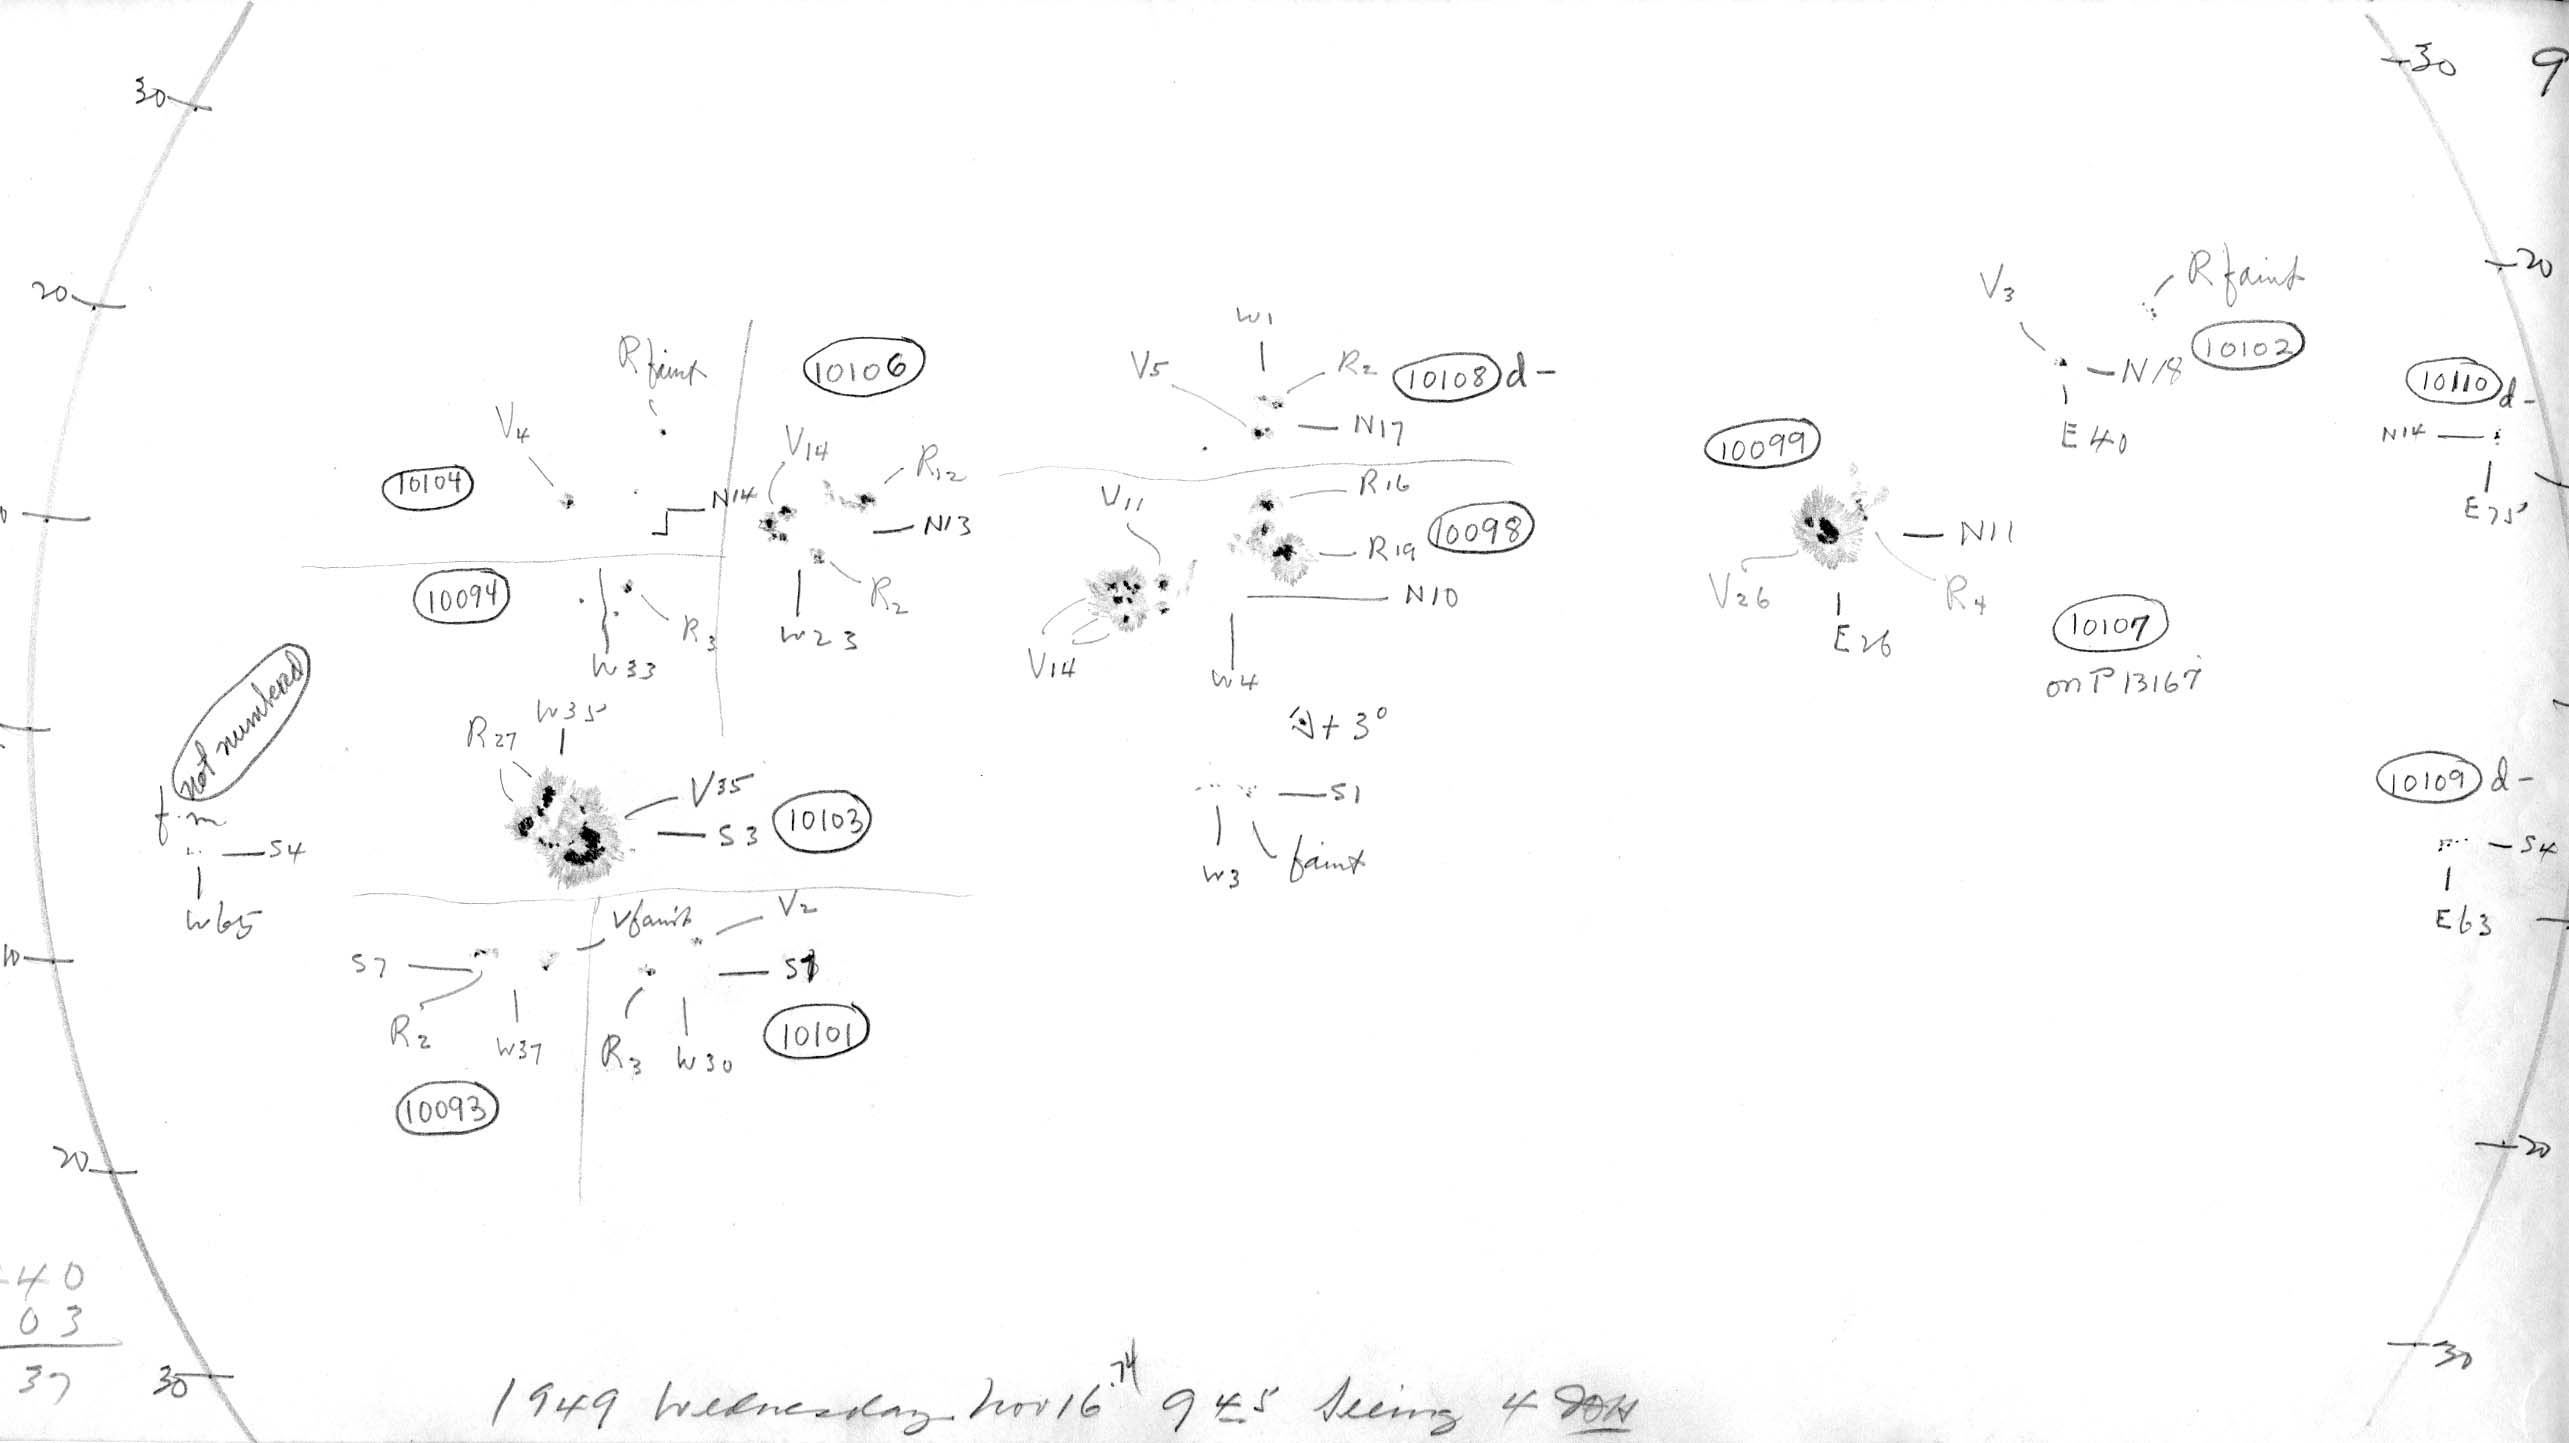 30
30
9
20
20
R faint
V3
N18
10102
E40
10110 d-
N14
E75
W1
V5
R2
10108 d-
N17
R faint
10106
V4
V14
R12
10104
N14
N13
R2
W23
10094
R3
W33
V11
R16
R19
10098
N10
V14
W4
10099
N11
V26
R4
E26
10107
on P 13167
not numbered
f.m
S4
W65
W35
R27
V35
S3
10103
+ 3°
S1
W3
faint
10109 d-
S4
E63
V faint
V2
S7
R2
W37
R3
W30
10101
10093
10
20
20
40
03
37
30
30
1949 Wednesday Nov 16.74 9 45 Seeing 4